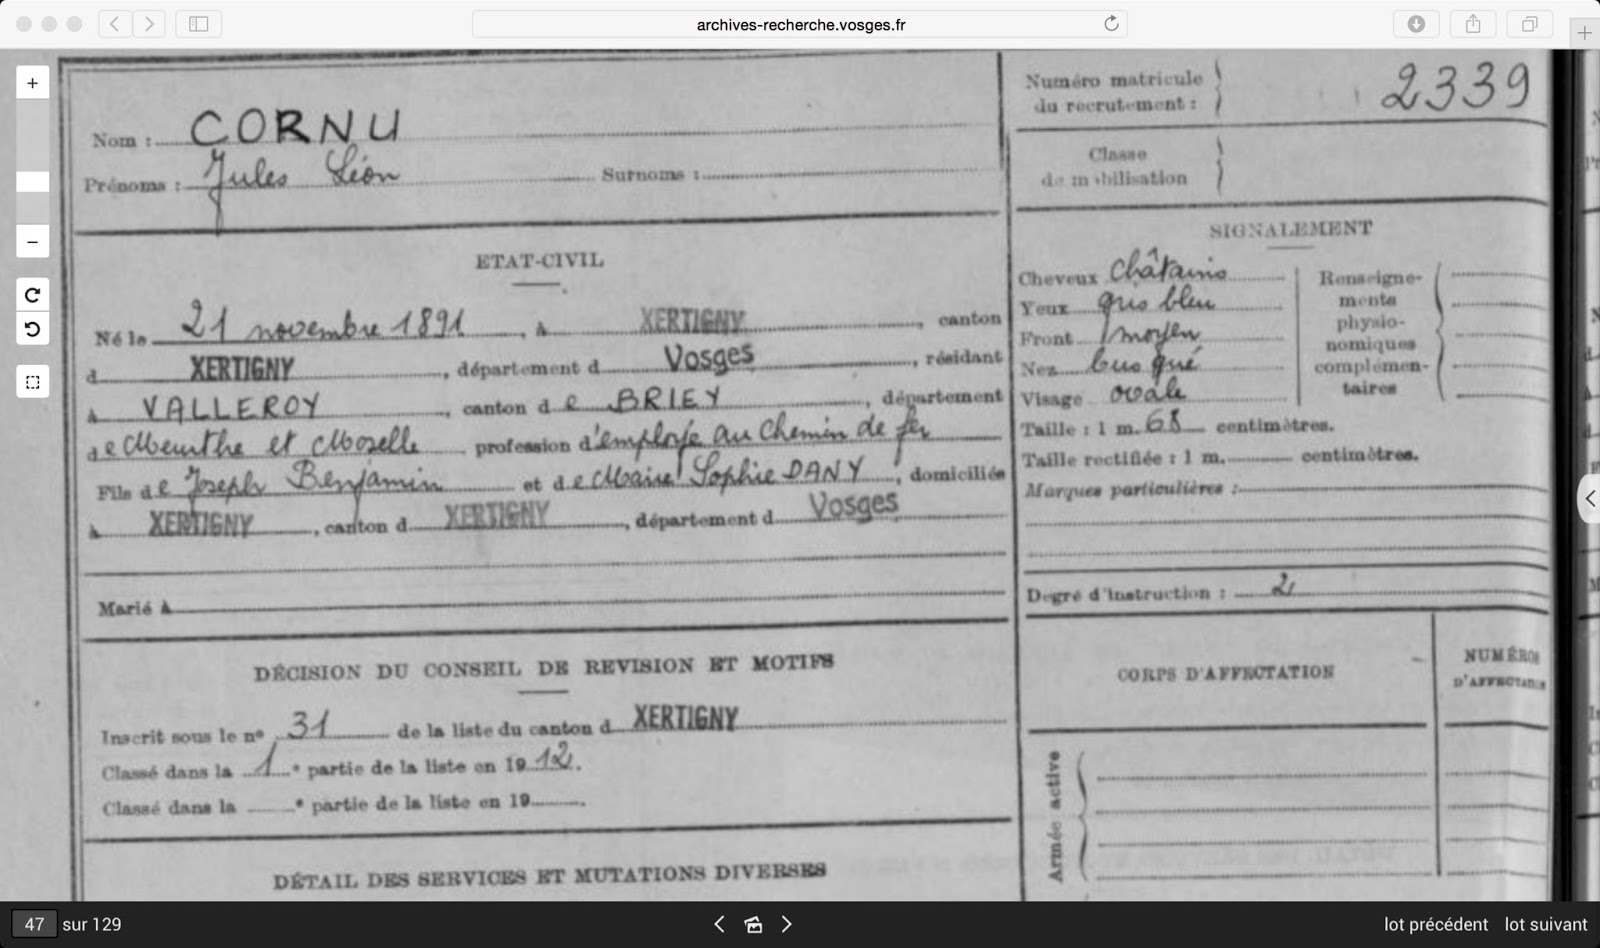 archives-recherche.vosges.fr
Nom : CORNU
Prénoms : Jules Léon Surnoms :
Numéro matricule
du recrutement : 2339
Classe
de mobilisation
ETAT-CIVIL
Né le 21 novembre 1891, à XERTIGNY, canton
d XERTIGNY, département d Vosges, résidant
à VALLEROY, canton de BRIEY, département
de Meurthe et Moselle, profession d'employé au Chemin de fer
Fils de Joseph Benjamin et de Marie Sophie DANY, domiciliés
à XERTIGNY, canton d XERTIGNY, département d Vosges
Marié à
SIGNALEMENT
Cheveux châtains
Yeux gris bleu
Front moyen
Nez busqué
Visage ovale
Renseigne-
ments
physio-
nomiques
complémen-
taires
Taille : 1 m. 68 centimètres.
Taille rectifiée : 1 m. centimètres.
Marques particulières :
Degré d'instruction : 2
DÉCISION DU CONSEIL DE REVISION ET MOTIFS
Inscrit sous le nº 31 de la liste du canton d XERTIGNY
Classé dans la 1e partie de la liste en 1912.
Classé dans la e partie de la liste en 19 .
CORPS D'AFFECTATION
NUMÉROS
Armée active
DÉTAIL DES SERVICES ET MUTATIONS DIVERSES
47 sur 129
lot précédent lot suivant